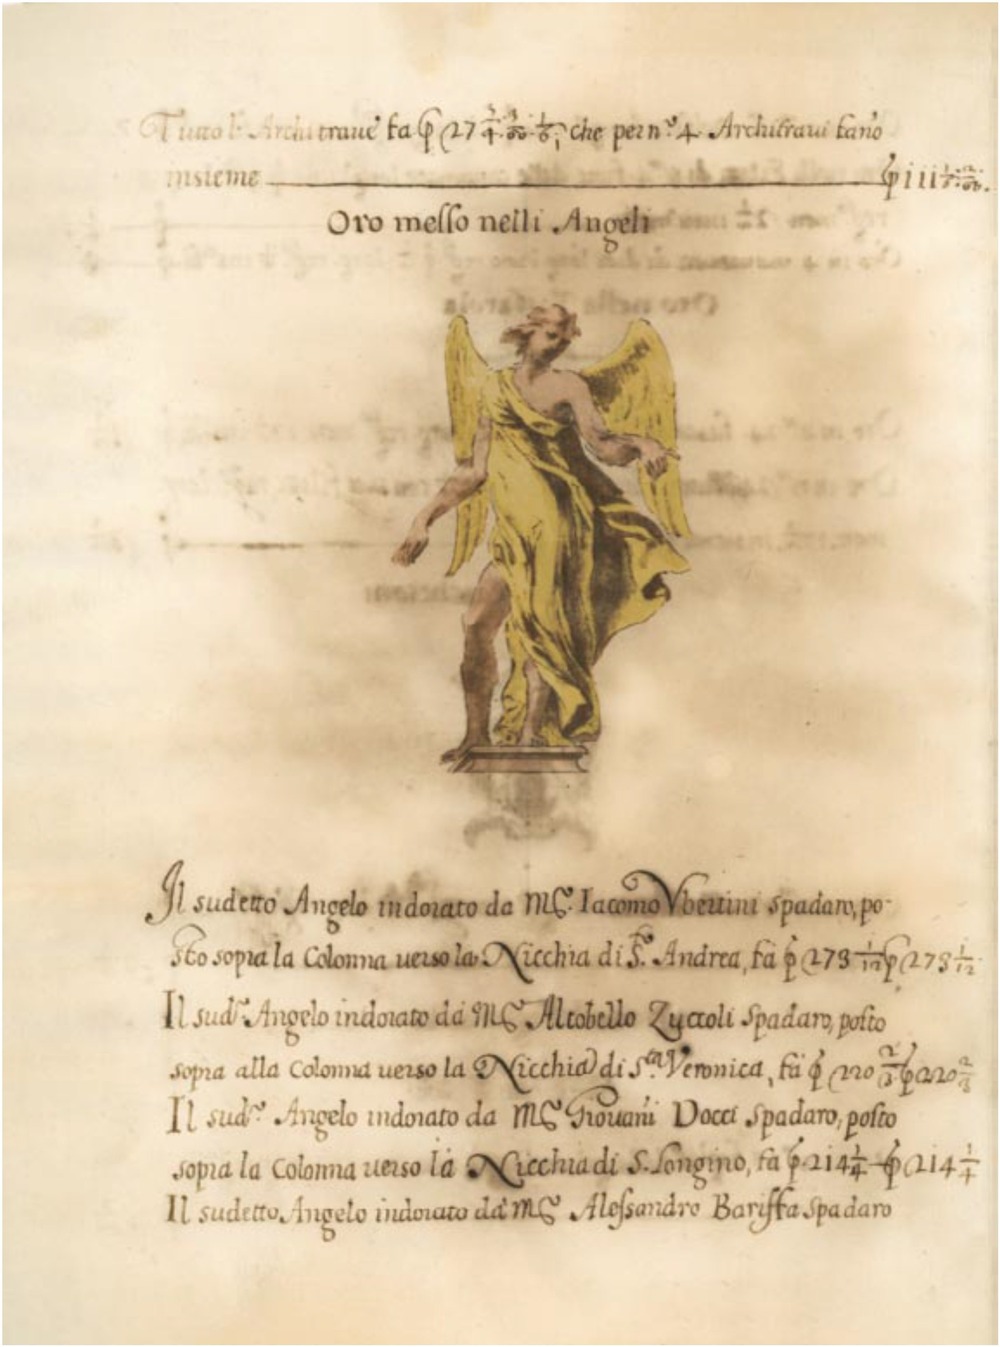 Tutto l'Architraue fa p 27 che per n.º 4 Architraui fano
insieme p 111
Oro messo nelli Angeli
Il sudetto Angelo indorato da Mº. Iacomo Vbertini spadaro, po-
sto sopra la Colonna uerso la Nicchia di S.to Andrea, fa p 273 1/12 p 273 1/12
Il sud.º Angelo indorato da Mº Altobello Zuccoli spadaro, posto
sopra alla Colonna uerso la Nicchia di S.ta Veronica, fa p 220 2/3 p 220 2/3
Il sud.º Angelo indorato da Mº Giouani Docci spadaro, posto
sopra la Colonna uerso la Nicchia di S. Longino, fa p 214 1/4 p 214 1/4
Il sudetto Angelo indorato da Mº Alessandro Bariffa spadaro